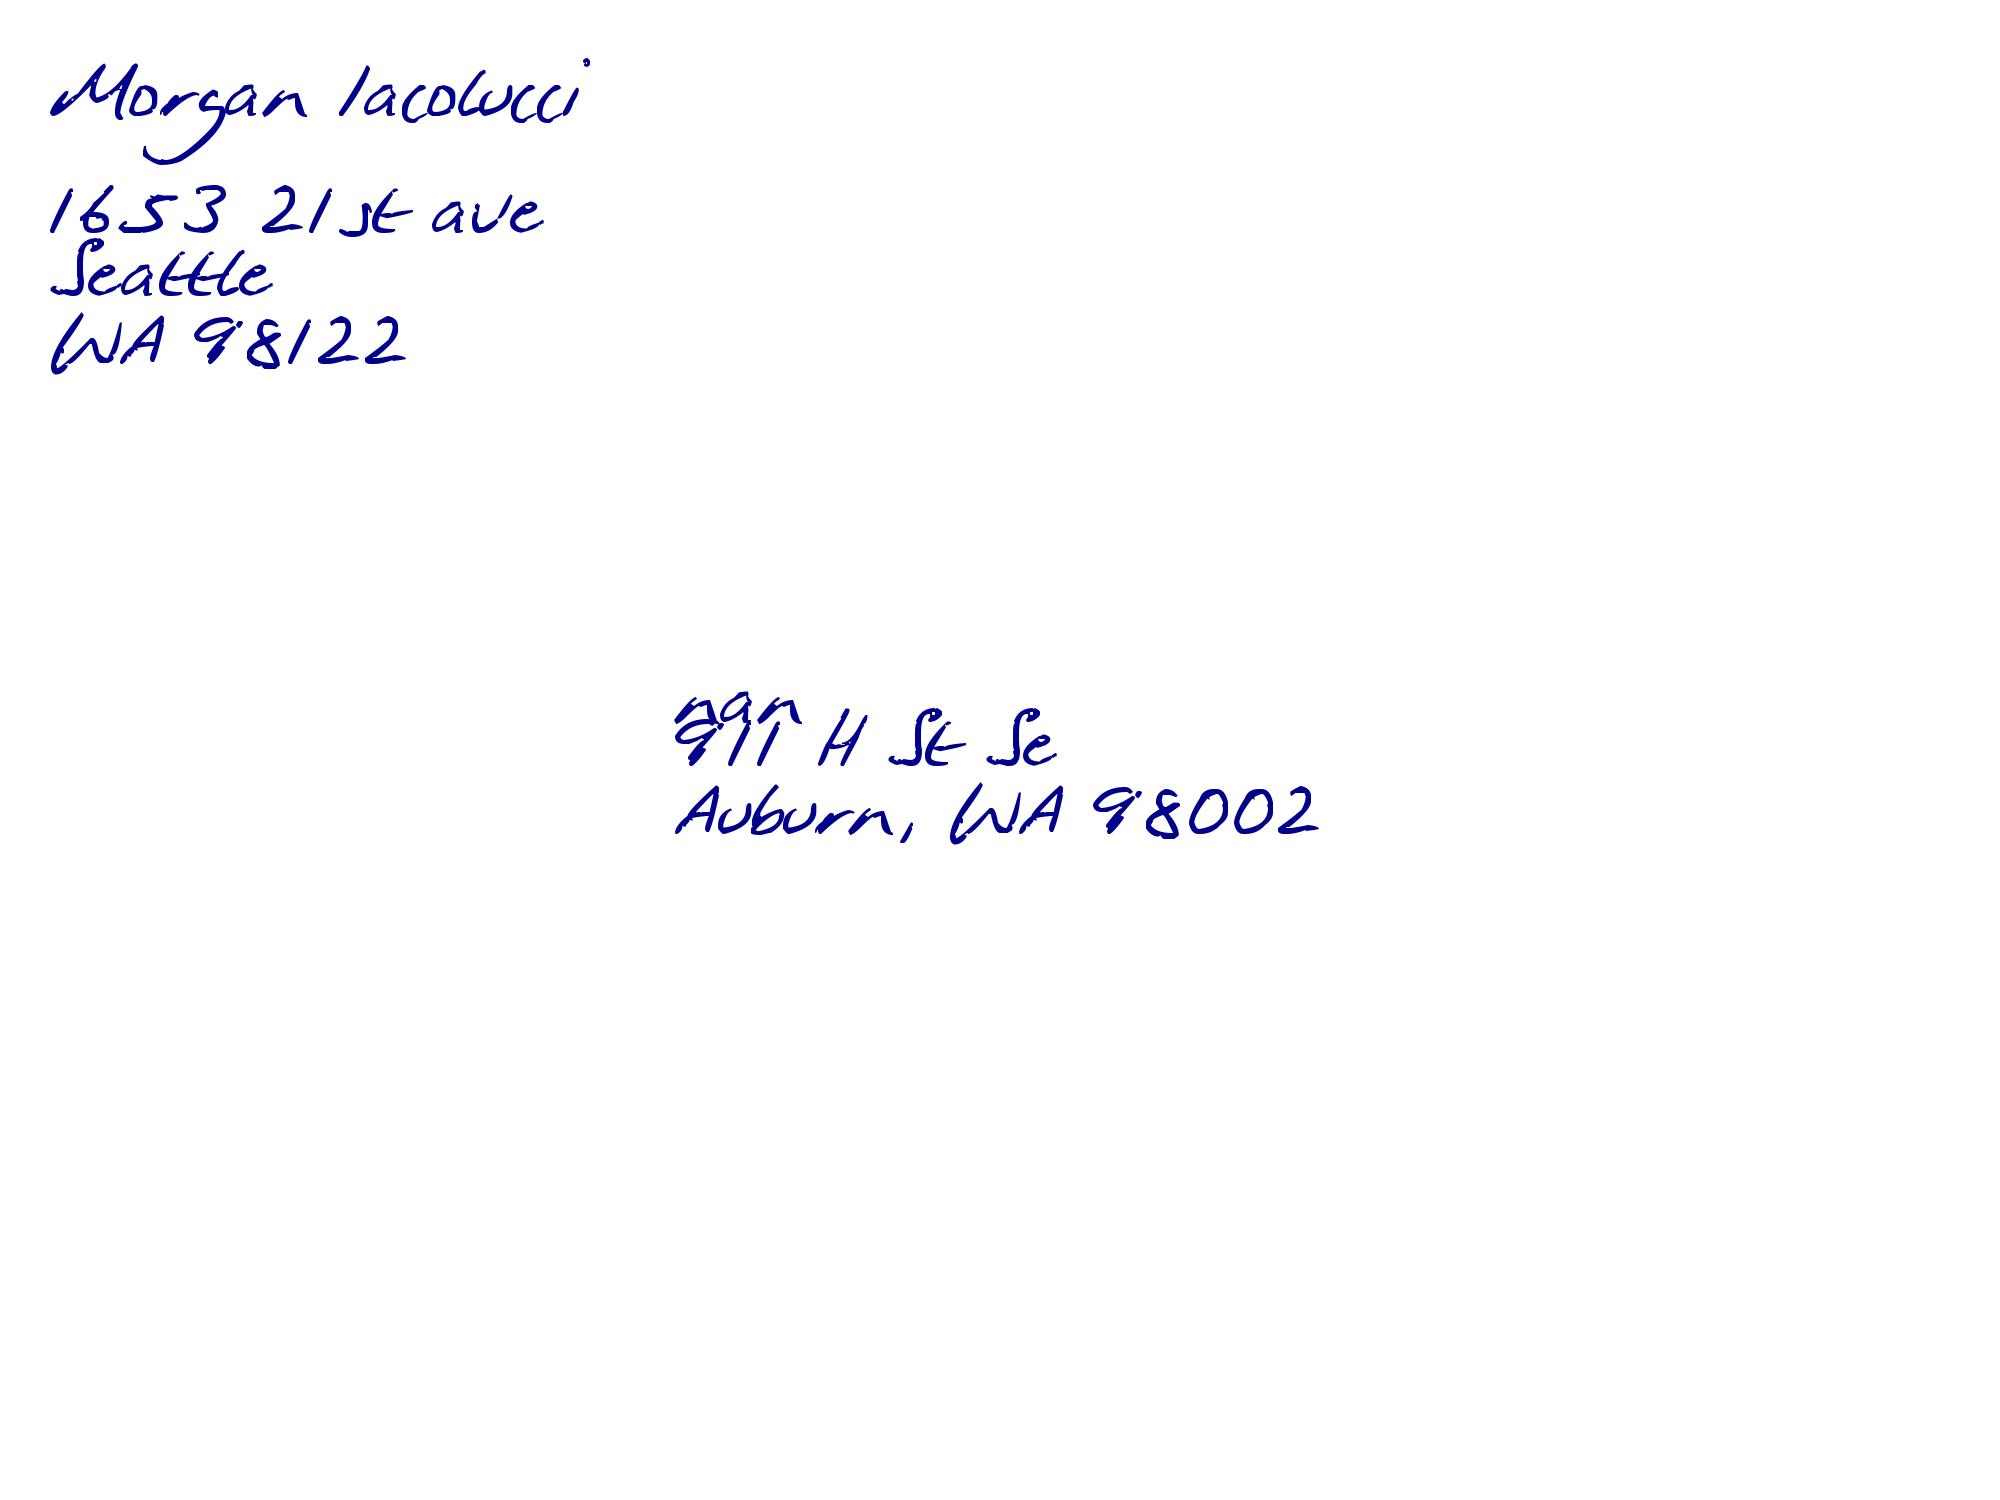 Morgan Iacolucci
1653 21st ave
Seattle
WA 98122
nan
911 H St Se
Auburn, WA 98002